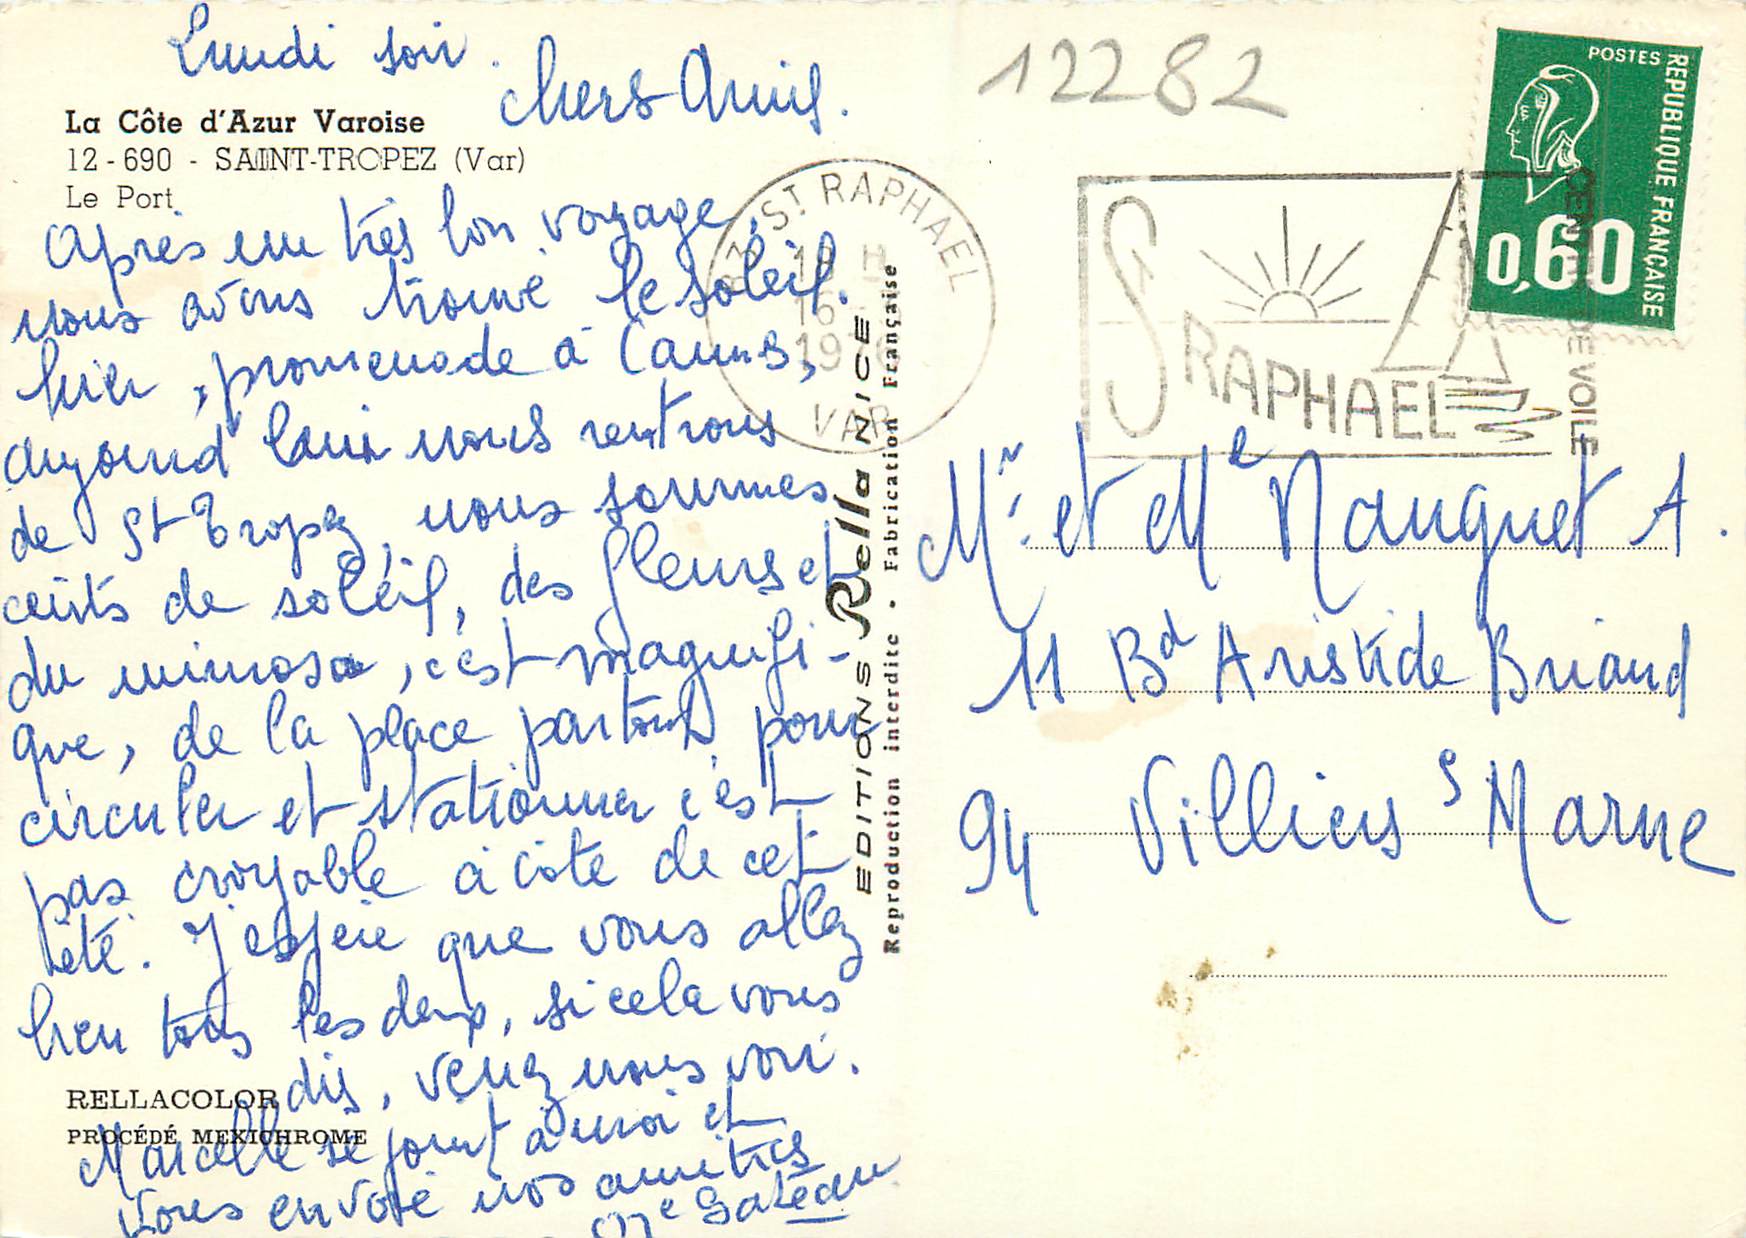 Lundi soir.
Chers Amis.
La Côte d'Azur Varoise
12-690 - SAINT-TROPEZ (Var)
Le Port
Après un très bon voyage,
nous avons trouvé le soleil.
hier, promenade à Cannes,
aujourd'hui nous rentrons
de St Tropez, nous sommes
ceints de soleil, des fleurs et
du mimosa, c'est magnifi-
que, de la place partout, pour
circuler et stationner c'est
pas croyable à côté de cet
été. J'espère que vous allez
bien tous les deux, si cela vous
dis, venez nous voir.
RELLACOLOR
PROCÉDÉ MEXICHROME
Marcelle se joint à moi et
vous envoie nos amitiés
Me Gateau
EDITIONS Rella NICE
Reproduction interdite • Fabrication Française
12282
ST RAPHAEL
18 H
16
1976
VAR
ST RAPHAEL
CENTRE DE VOILE
POSTES
REPUBLIQUE FRANÇAISE
0,60
Mr. et Me Nauguet A.
11 Bd Aristide Briand
94 Villiers s Marne